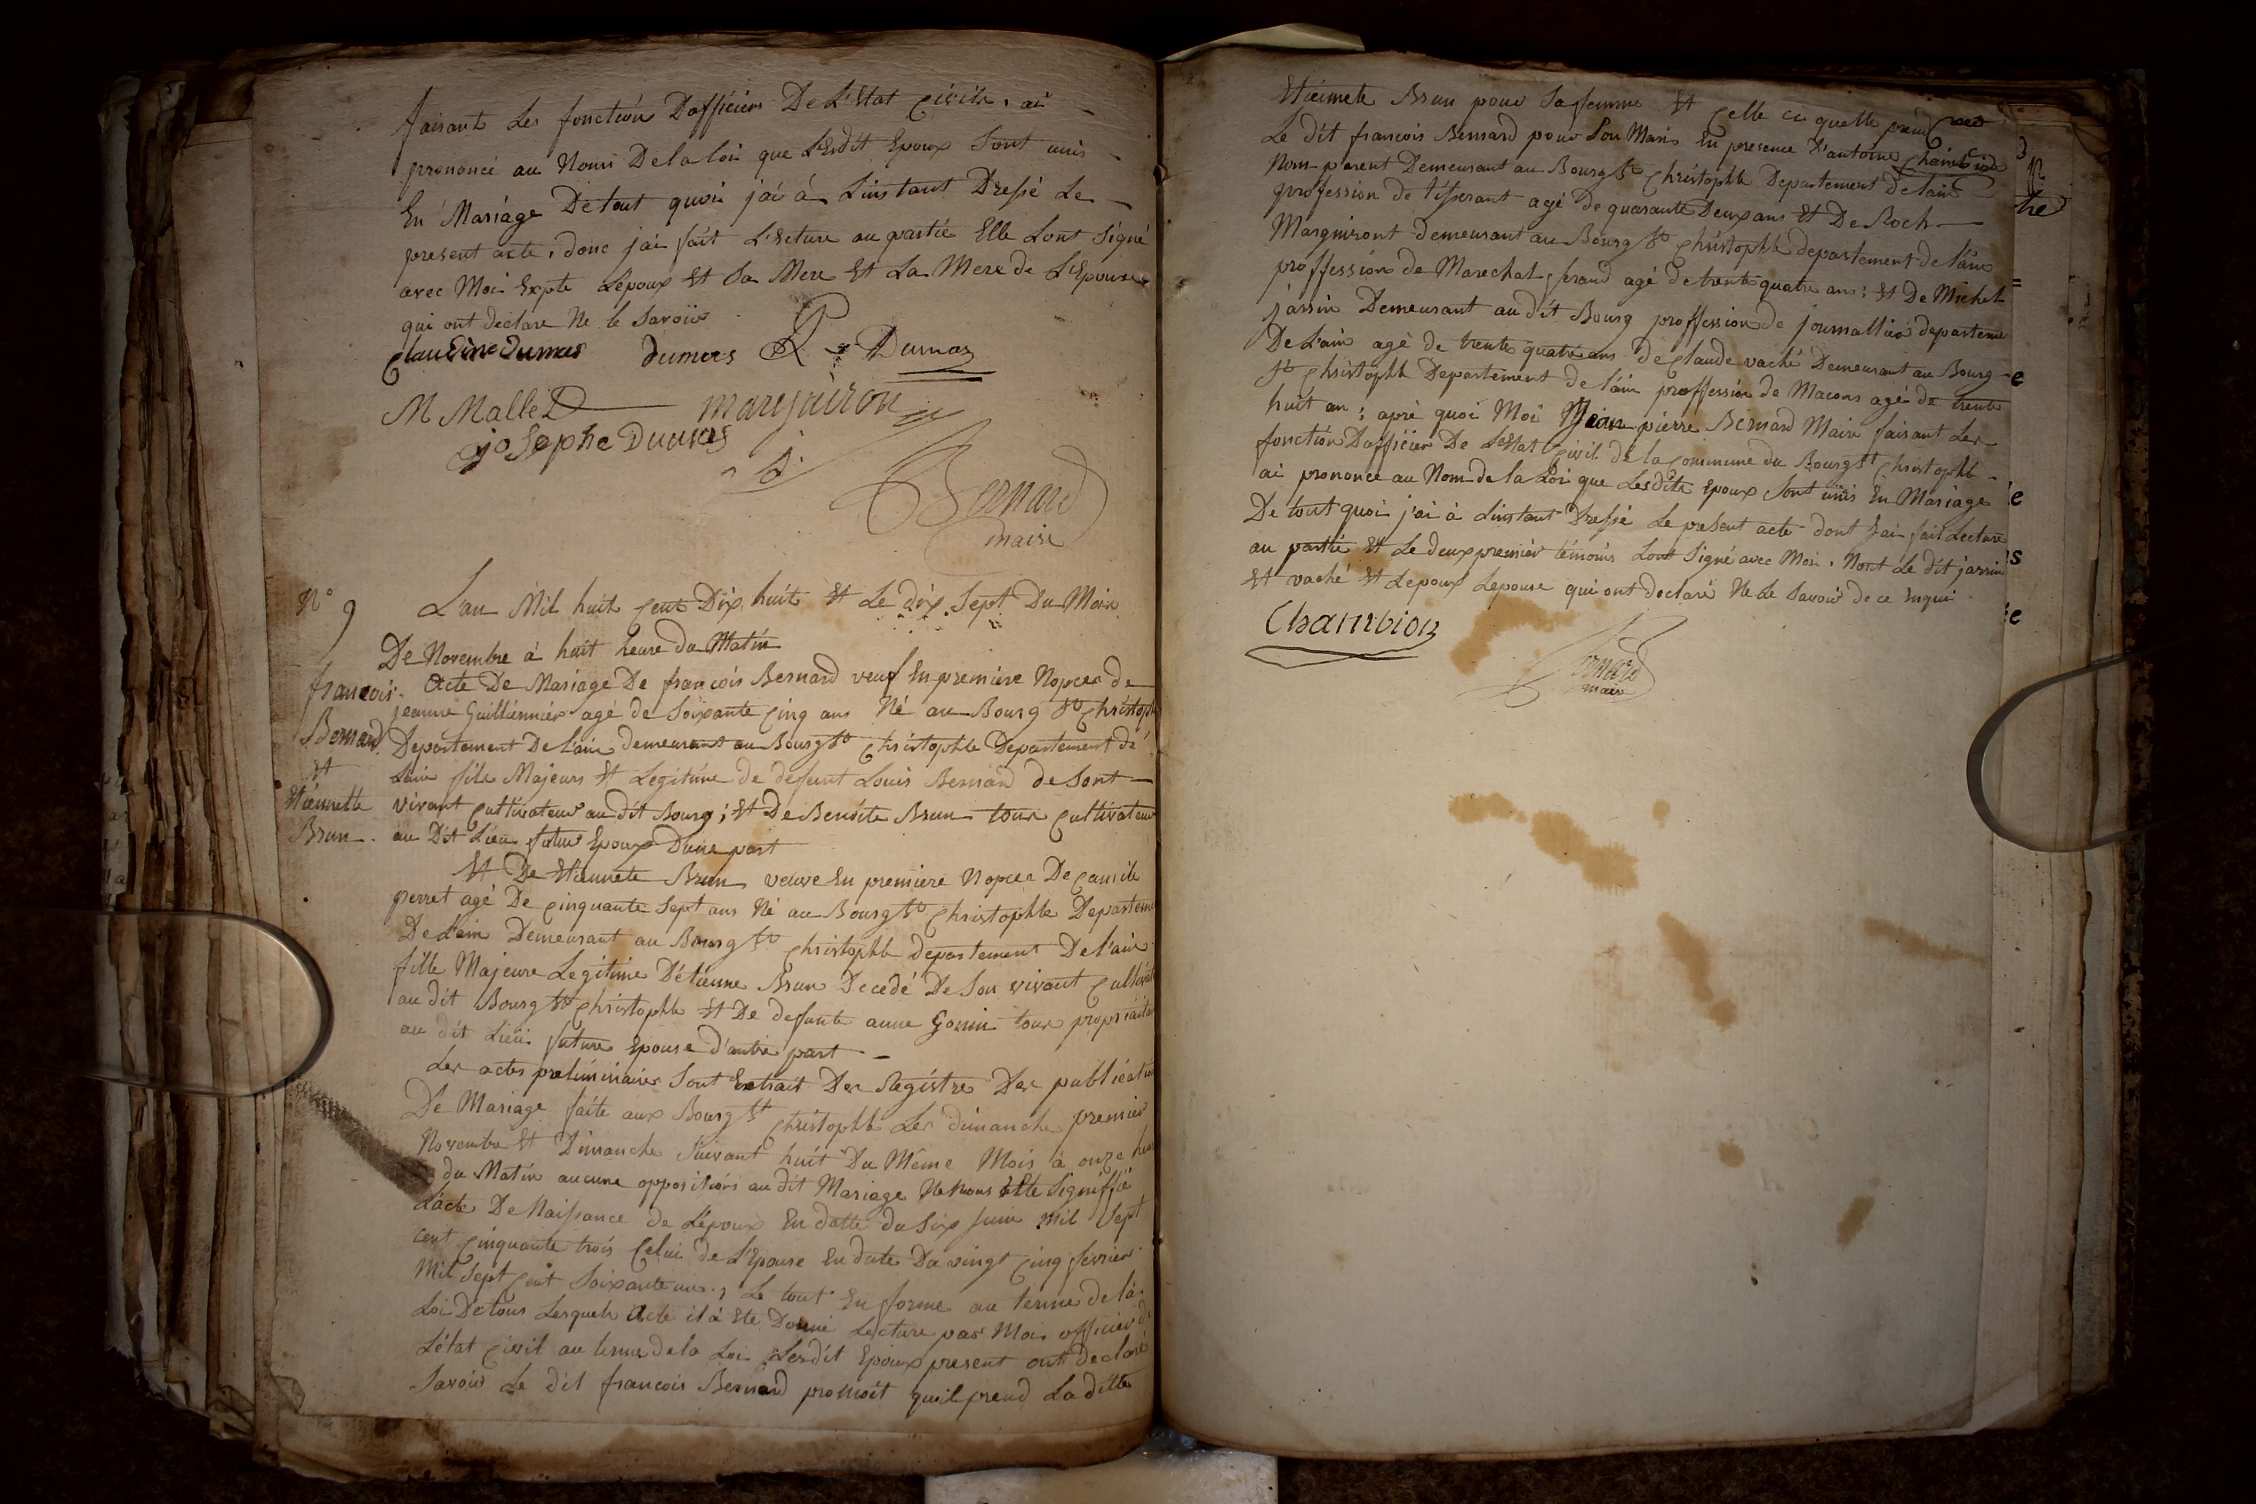 faisant Les fonction Dofficier De L'Etat Civile, ai
prononcé au Nom De la loi que Lesdit Epoux Sont unis
En Mariage De tout quoi jai à Linstant Dressé Le
present acte, donc jai fait L'ecture au partié Elle Lont Signé
avec Moi Expte Lepoux Et Sa Mere Et La Mere de L'Epouse
qui ont declare Ne le Savoir
Claudine Dumas dumas Dumas
M Mallet marguiron
josephe Dumas
Bernard
maire
N° 9
L'an Mil huit Cent Dix huit Et Le dix Sept Du Mois
De Novembre à huit heure du Matin
francois
Bernard
Et
Etiennette
Brun
Acte De Mariage De francois Bernard veuf En premiere Nopces de
jeanne Guillermier agé de Soixante Cinq ans Né au Bourg St Christoph
Departement De lain demeurant au Bourg St Christophle Departement de
Lain fils Majeurs Et Legitime de defunt Louis Bernard de Sont
vivant Cultivateur au dit Bourg; Et De Benoite Brun tous Cultivateur
au Dit Lieu futur Epoux D'une part
Et De Etiennete Brun veuve En premiere Nopces De Camile
perret agé De Cinquante Sept ans Né au Bourg St Christophle Departeme
De L'ain Demeurant au Bourg St Christophle departement De l'ain
fille Majeure Legitime D'etienne Brun Decedé De Son vivant Cultivat
au dit Bourg St Christophle Et De defunte anne Gonin tous propriaitai
au dit Lieu future Epouse d'autre part
Les actes preliminaires Sont Extrait Des Registre Des publicatio
De Mariage faite aux Bourg St Christophle Les dimanche premier
Novembre Et Dimanche Suivant huit Du Même Mois à onze heu
du Matin aucune oppositions au dit Mariage Ne nous Este Signiffié
Lacte De Naissance de L'epoux En datte du Six juin Mil Sept
cent Cinquante trois Celui de L'Epouse En date Du vingt Cinq fevrier
Mil Sept Cent Soixante un; Le tout En forme au terme de la
Loi De tous Lesquels Acte il à Ete Donné Lecture par Moi officier de
L'état Civil au terme de la Loi Lesdit Epoux present ont declaré
Savoir Le dit francois Bernard promoit quil prend Laditte
Etieinete Brun pour Sa femme Et Celle ci quelle prend
Le dit francois Bernard pour Son Maris En presence D'antoine Chambion
Nom parent Demeurant au Bourg St Christophle Departement de lain
profession de tisserant agé de quarante Deux ans Et De Roch
Marguiront demeurant au Bourg St Christophle departement de l'ain
proffession de Marechal ferand agé de trente quatre ans; Et De Michel
jassin Demeurant au dit Bourg proffession de journallié departeme
De L'ain agé de trente quatre ans de Claude vaché Demeurant au Bourg
St Christophle Departement de l'ain proffession de Macons agé de trente
huit an; apré quoi Moi Jean pierre Bernard Maire faisant Les
fonction Dofficier De L'etat Civil de la Commune du Bourg St Christophle
ai prononcé au Nom de la Loi que Lesdite Epoux Sont unis En Mariage
De tout quoi j'ai à Linstant Dressé Le present acte dont Jai fait Lecture
au partié Et Le deux premier témoins Lont Signé avec Moi. Nont Le dit jassin
Et vaché Et Lepoux Lepouse qui ont declaré Ne Le Savoir de ce Enqui
Chambion
Bernard
maire